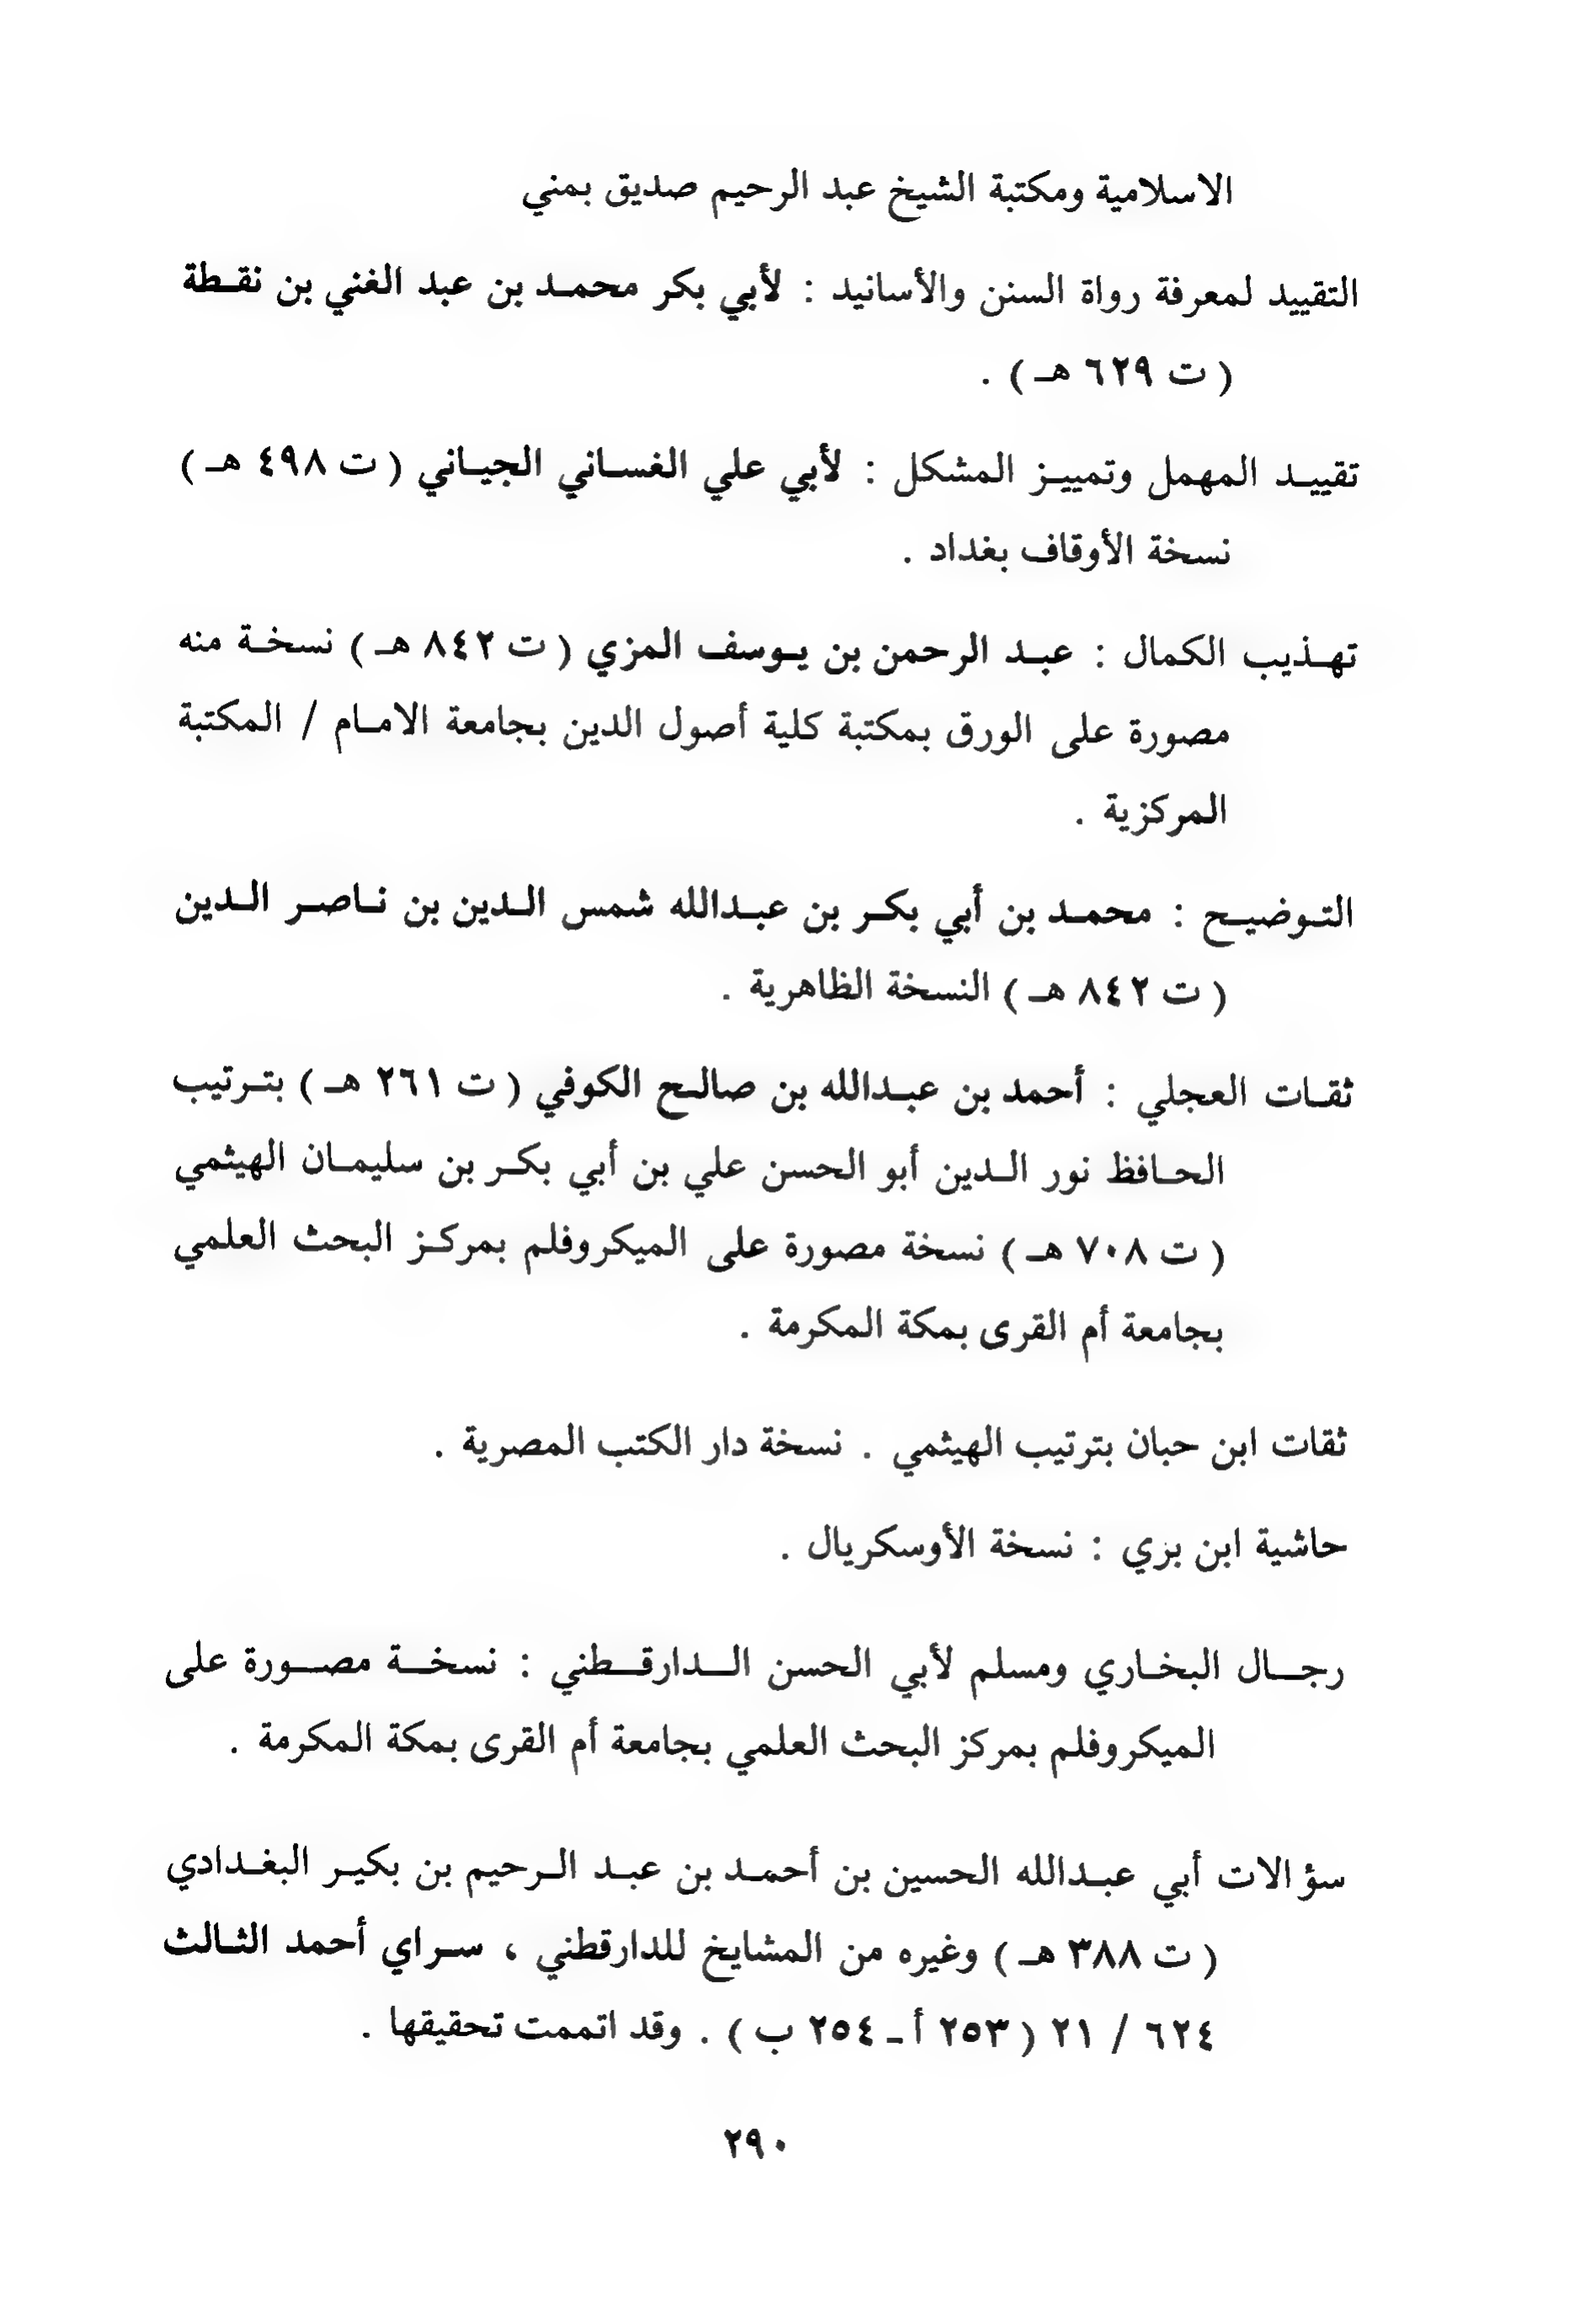 الاسلامية ومكتبة الشيخ عبد الرحيم صديق بمني
التقييد لمعرفة رواة السنن والأسانيد : لأبي بكر محمد بن عبد الغني بن نقطة
( ت ٦٢٩ هـ ) .
تقييد المهمل وتمييز المشكل : لأبي علي الغساني الجياني ( ت ٤٩٨ هـ )
نسخة الأوقاف بغداد .
تهذيب الكمال : عبد الرحمن بن يوسف المزي ( ت ٨٤٢ هـ ) نسخة منه
مصورة على الورق بمكتبة كلية أصول الدين بجامعة الامام / المكتبة
المركزية .
التوضيح : محمد بن أبي بكر بن عبدالله شمس الدين بن ناصر الدين
( ت ٨٤٢ هـ ) النسخة الظاهرية .
ثقات العجلي : أحمد بن عبدالله بن صالح الكوفي ( ت ٢٦١ هـ ) بترتيب
الحافظ نور الدين أبو الحسن علي بن أبي بكر بن سليمان الهيثمي
( ت ٧٠٨ هـ ) نسخة مصورة على الميكروفلم بمركز البحث العلمي
بجامعة أم القرى بمكة المكرمة .
ثقات ابن حبان بترتيب الهيثمي . نسخة دار الكتب المصرية .
حاشية ابن بري : نسخة الأوسكريال .
رجال البخاري ومسلم لأبي الحسن الدارقطني : نسخة مصورة على
الميكروفلم بمركز البحث العلمي بجامعة أم القرى بمكة المكرمة .
سؤالات أبي عبدالله الحسين بن أحمد بن عبد الرحيم بن بكير البغدادي
( ت ٣٨٨ هـ ) وغيره من المشايخ للدارقطني ، سراي أحمد الثالث
٦٢٤ / ٢١ ( ٢٥٣ أ - ٢٥٤ ب ) . وقد اتممت تحقيقها .
٢٩٠